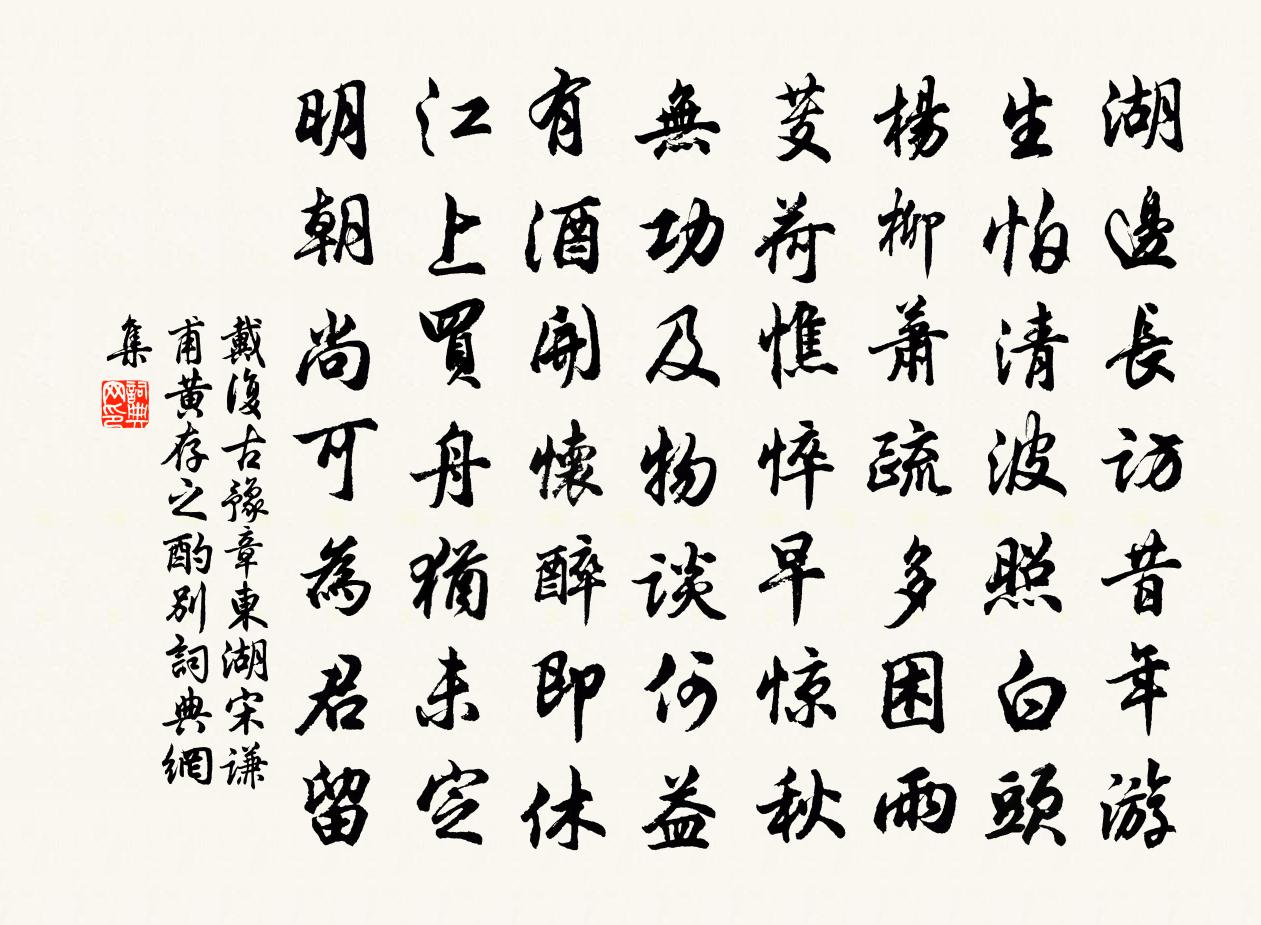 湖邊長訪昔年游
生怕清波照白頭
楊柳蕭疏多困雨
芰荷憔悴早惊秋
無功及物談何益
有酒開懷醉即休
江上買舟猶未定
明朝尚可為君留
戴復古豫章東湖宋谦
甫黄存之酌别詞典網
集
詞典
网印